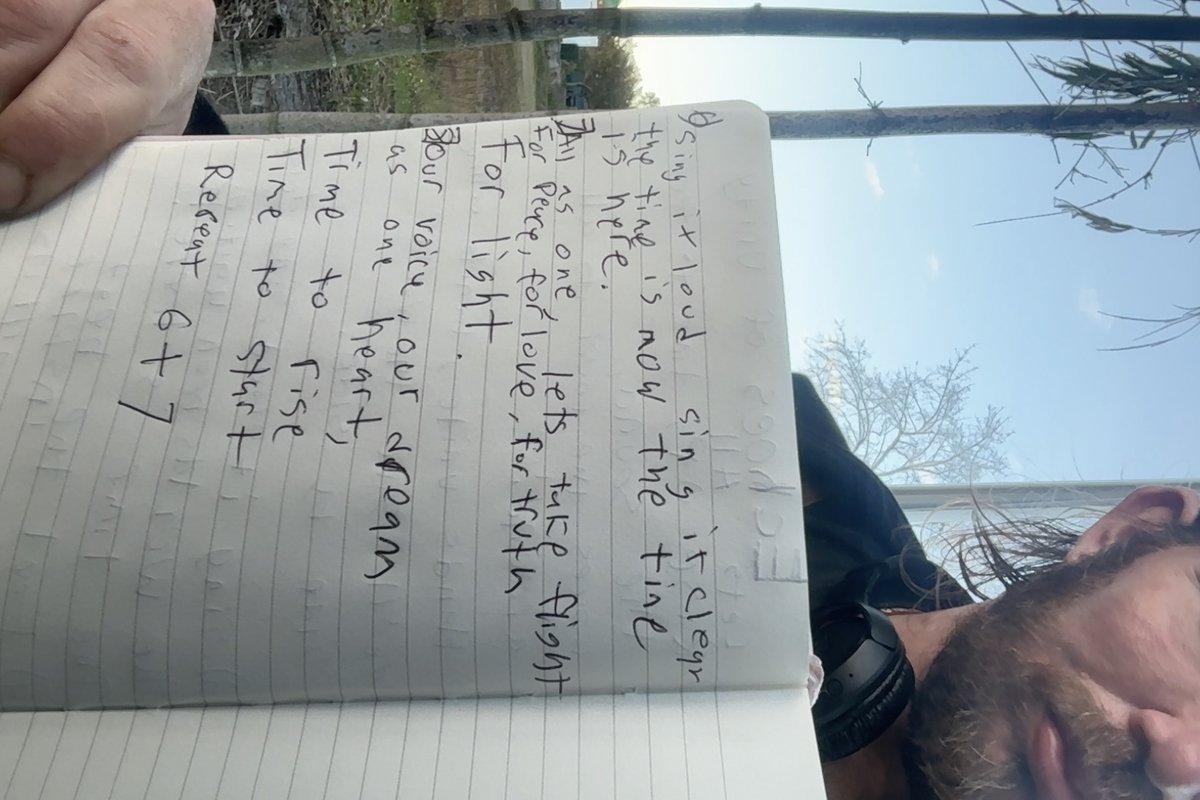 6) sing it loud sing it clear
the time is now the time
is here.
7 All as one lets take flight
For Peace, for love, for truth
For light.
8 our voice, our dream
as one heart,
Time to rise
Time to start
Repeat 6 + 7